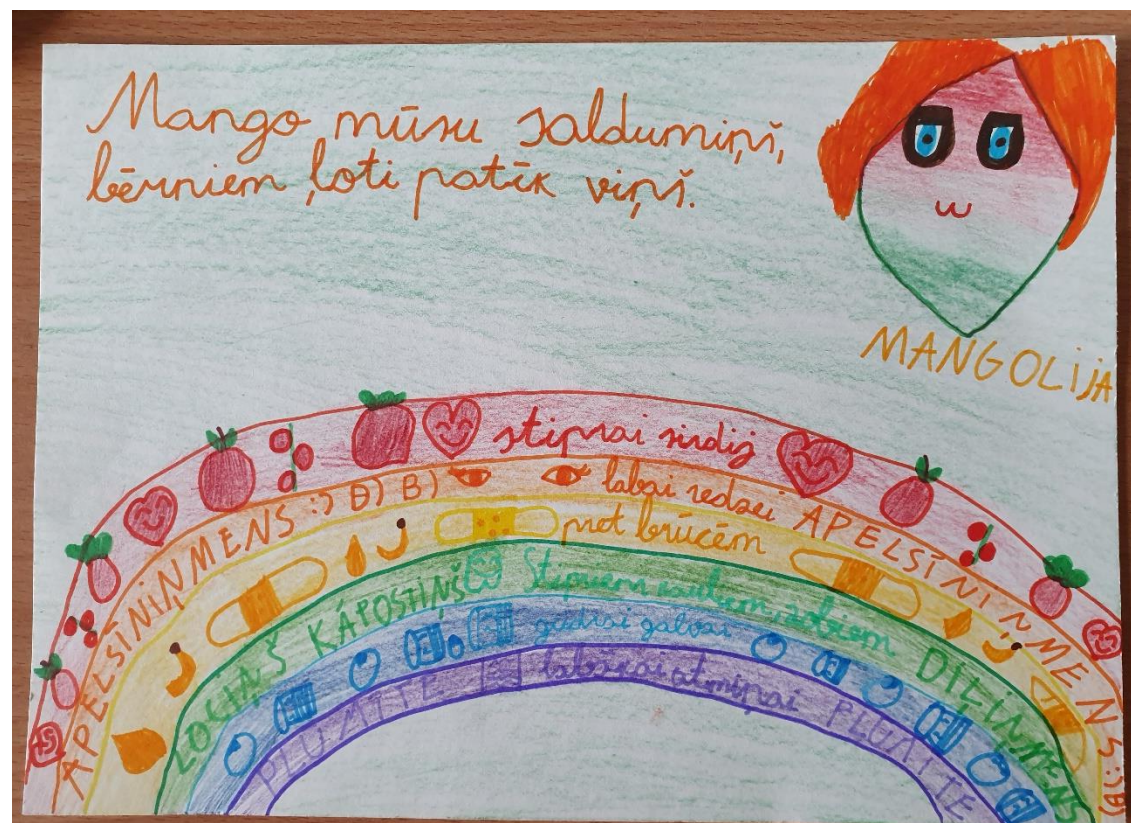 Mango mūsu saldumiņš,
bērniem ļoti patīk viņš.
MANGOLIJA
stiprai sirdij
APELSĪNIŅMENS :) B) B) labai redzei APELSĪNIŅMENS
pret brūcēm
LOCIŅŠ KÁPOSTIŅŠ Stipriem zobiem DILIŅMENS
gudrai galvai
PLŪMĪTE labākai atmiņai PLŪMĪTE